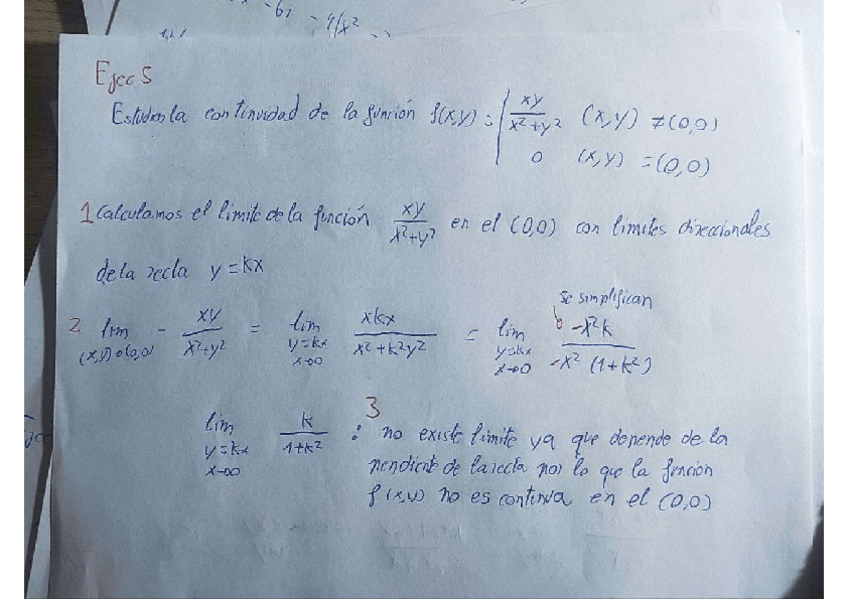 Ejcc 5
Estudia la continuidad de la función f(x,y) = { xy/x²+y² (x,y) ≠ (0,0)
0 (x,y) = (0,0)
1 Calculamos el límite de la función xy/x²+y² en el (0,0) con límites direccionales
de la recta y = kx
se simplifican
2 lim (x,y)→(0,0) - xy/x²+y² = lim y=kx x→0 xkx/x²+k²y² = lim y=kx x→0 x²k/x² (1+k²)
lim y=kx x→0 k/1+k² : 3 no existe límite ya que depende de la
pendiente de la recta por lo que la función
f(x,y) no es continua en el (0,0)